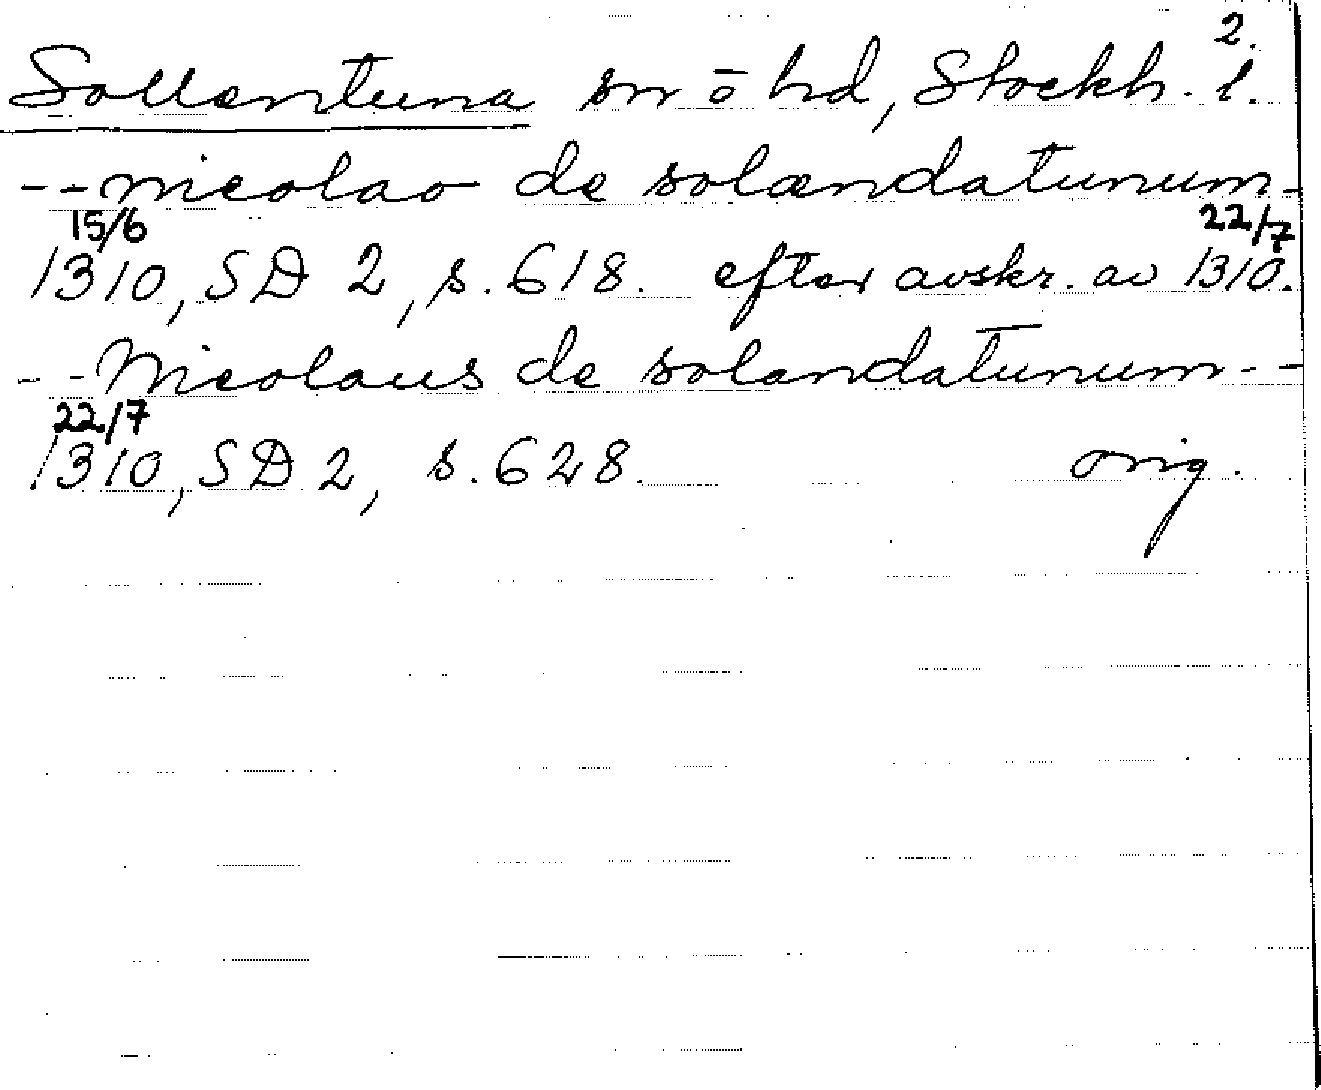 2.
Sollentuna sn o hd, Stockh. l.
--nicolao de solændatunum-
15/6 22/7
1310, SD 2, s. 618. efter avskr. av 1310.
--Nicolaus de solandatunum--
22/7
1310, SD 2, s. 628. orig.